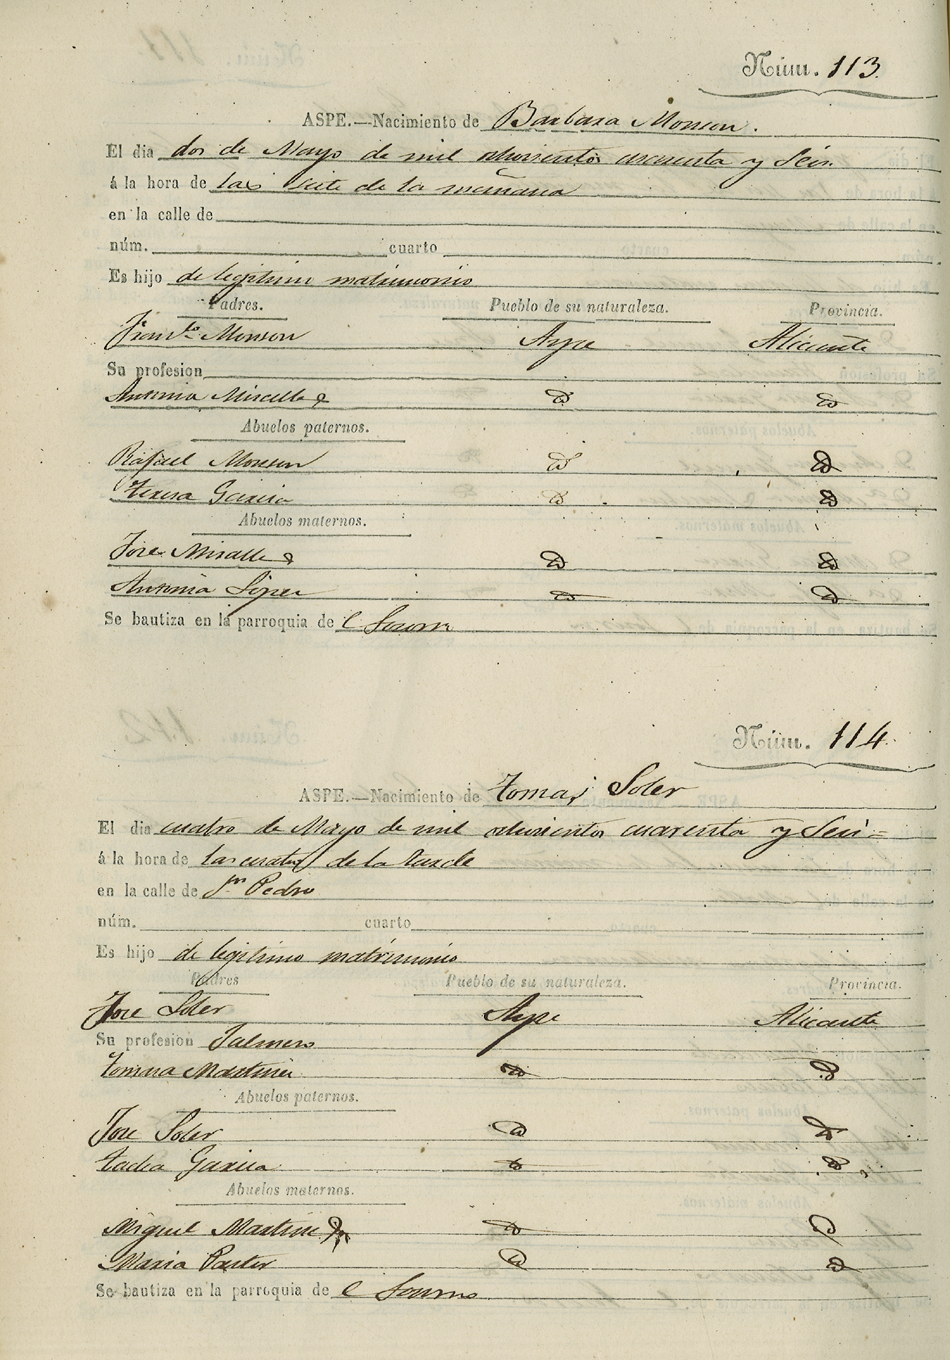 Núm. 113
ASPE.—Nacimiento de Barbara Monson.
El dia dos de Mayo de mil ochocientos cuarenta y Seis
á la hora de las siete de la mañana
en la calle de
núm. cuarto
Es hijo de legitimo matrimonio
Padres. Pueblo de su naturaleza. Provincia.
Franco. Monson Aspe Alicante
Su profesion
Antonia Miralles
Abuelos paternos.
Rafael Monson
Teresa Garcia
Abuelos maternos.
Jose Miralles
Antonia Lopez
Se bautiza en la parroquia de
Núm. 114
ASPE.—Nacimiento de Tomas Soler
El dia cuatro de Mayo de mil ochocientos cuarenta y Seis
á la hora de las cuatro de la tarde
en la calle de Sn. Pedro
núm. cuarto
Es hijo de legitimo matrimonio
Padres Pueblo de su naturaleza. Provincia.
Jose Soler Aspe Alicante
Su profesion
Tomasa Martinez
Abuelos paternos.
Jose Soler
Garcia
Abuelos maternos.
Miguel Martinez
Maria Pastor
Se bautiza en la parroquia de